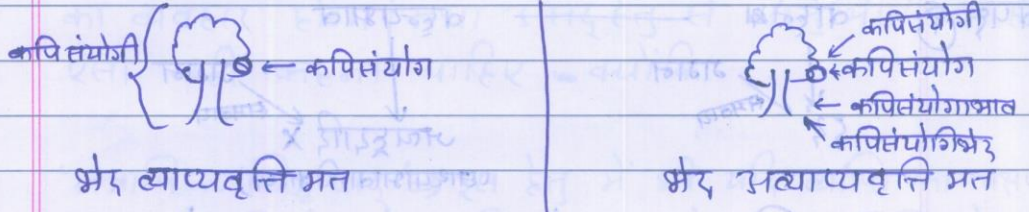 कपिसंयोगी
कपिसंयोग
भेद व्याप्यवृत्ति मत
कपिसंयोगी
कपिसंयोग
कपिसंयोगाभाव
कपिसंयोगिभेद
भेद अव्याप्यवृत्ति मत